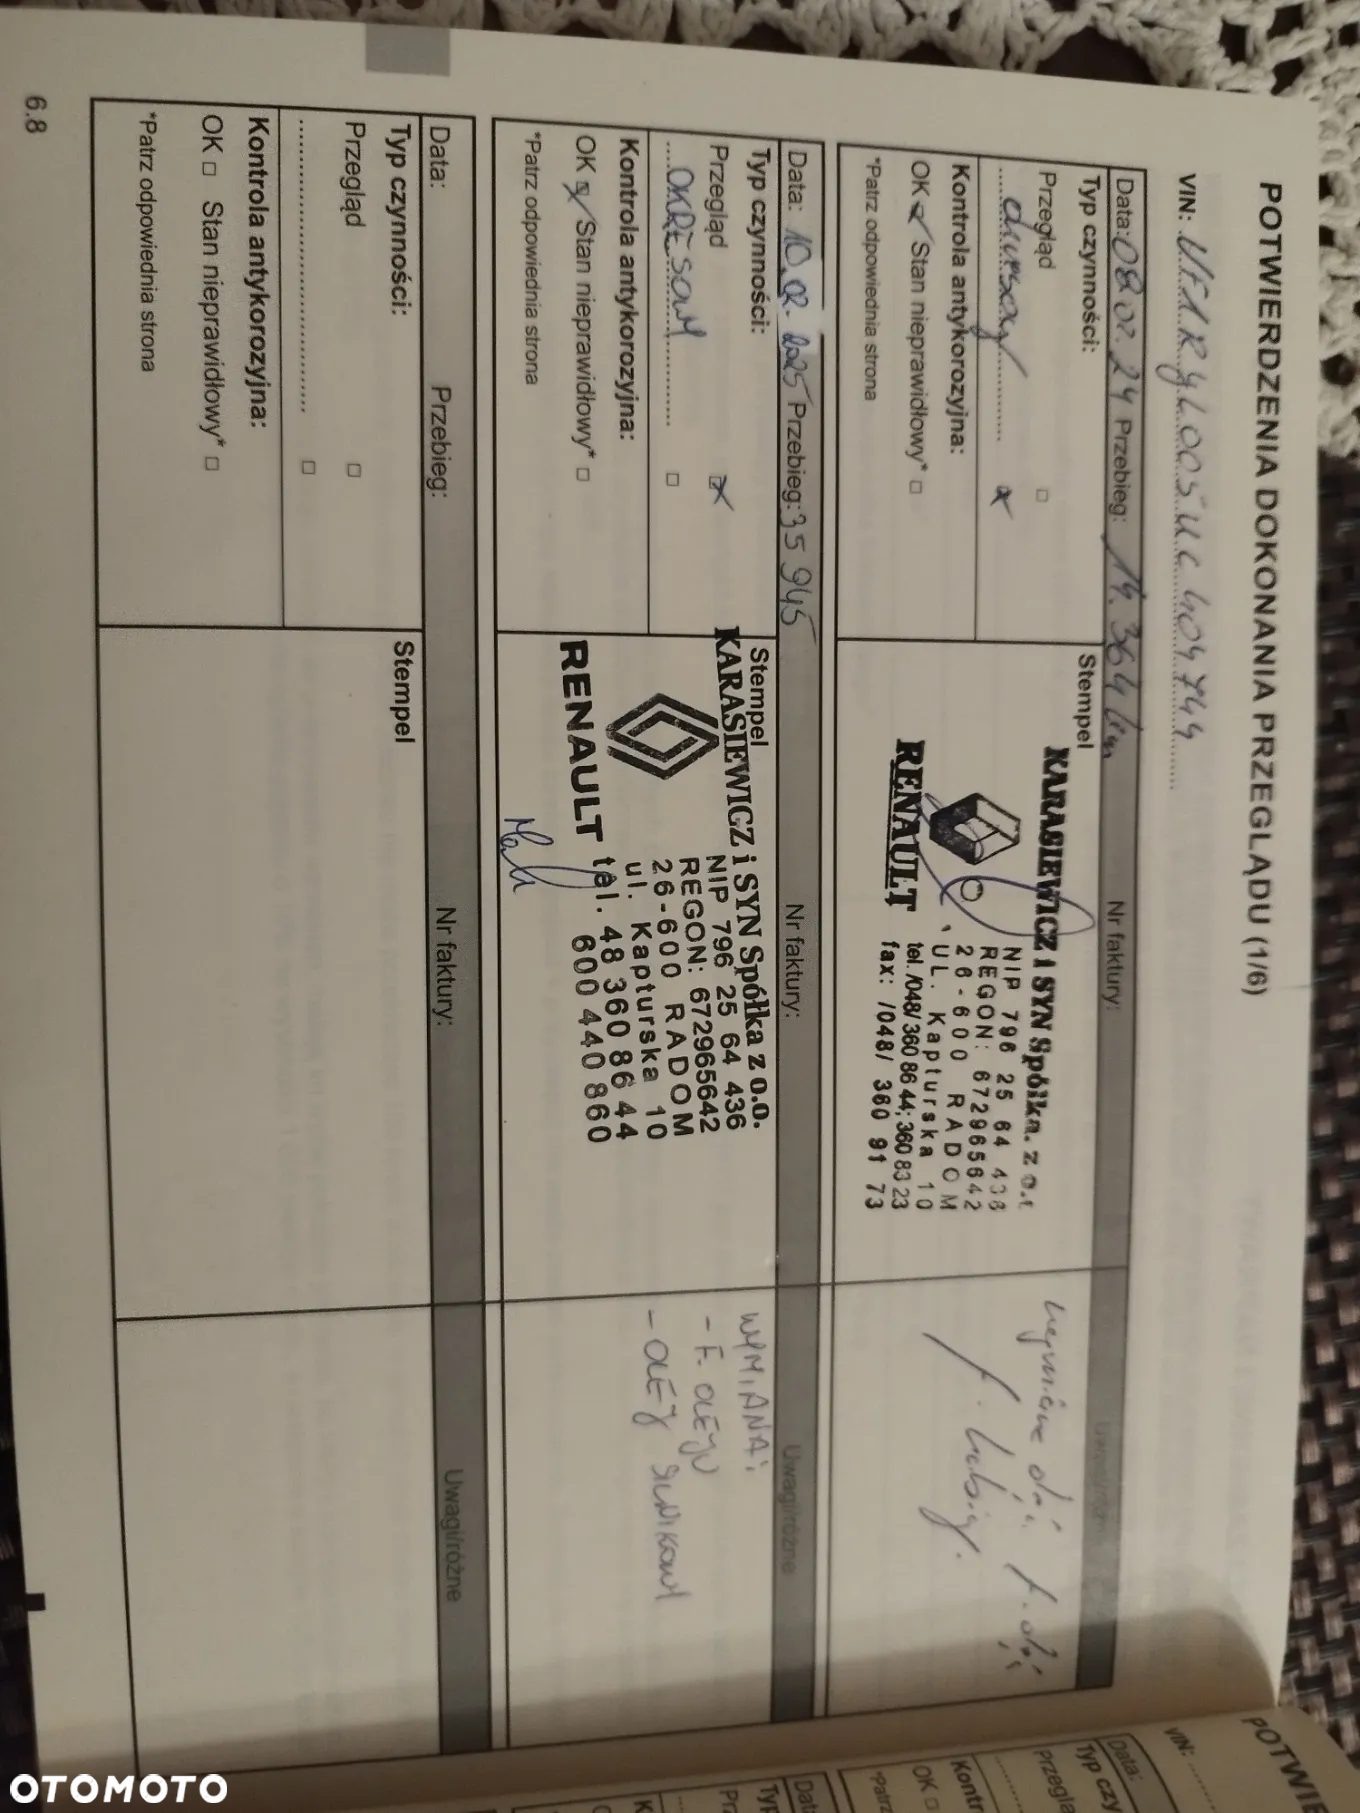 POTWIERDZENIA DOKONANIA PRZEGLĄDU (1/6)
VIN:
Data: 08.02.24 Przebieg: 19.364 km Nr faktury:
Typ czynności:
Przegląd □
Kontrola antykorozyjna:
OK Stan nieprawidłowy* □
*Patrz odpowiednia strona
Stempel
KARASIEWICZ i SYN Spółka. z o.o.
NIP 796 25 64 436
REGON: 672965642
26-600 RADOM
UL. Kapturska 10
tel. /048/ 360 86 44; 360 83 23
fax: /048/ 360 91 73
RENAULT
Uwagi/różne
Data: 10.02.2025 Przebieg: 35 945 Nr faktury: Uwagi/różne
Typ czynności:
Przegląd
OKRESOWY □
Kontrola antykorozyjna:
OK Stan nieprawidłowy* □
*Patrz odpowiednia strona
Stempel
KARASIEWICZ i SYN Spółka z o.o.
NIP 796 25 64 436
REGON: 672965642
26-600 RADOM
ul. Kapturska 10
tel. 48 360 86 44
600 440 860
RENAULT
WYMIANA:
- F. OLEJU
- OLEJ SILNIKOWY
Data: Przebieg: Nr faktury: Uwagi/różne
Typ czynności:
Przegląd □
□
Kontrola antykorozyjna:
OK □ Stan nieprawidłowy* □
*Patrz odpowiednia strona
Stempel
6.8
POTWIE
VIN:
Data:
Typ czy
Przeglą
Kontr
OK □
*Patrz
OTOMOTO